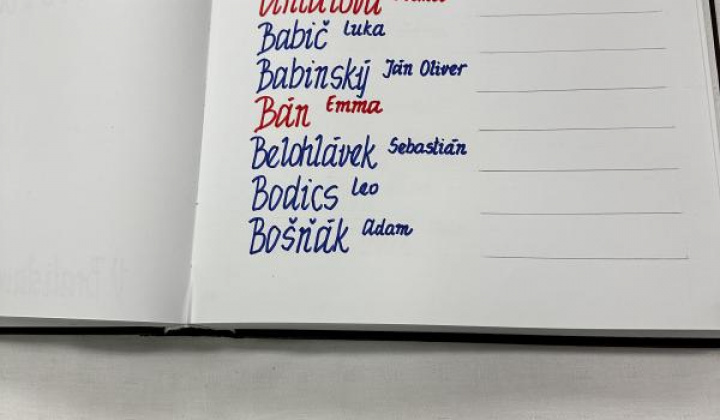 Babič Luka
Babinský Ján Oliver
Bán Emma
Belohlávek Sebastián
Bodics Leo
Bošňák Adam